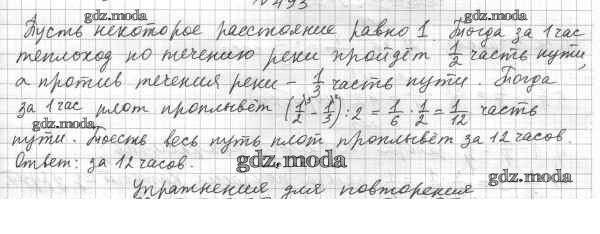 № 493
gdz.moda
gdz.moda
Пусть некоторое расстояние равно 1. Тогда за 1 час
теплоход по течению реки пройдёт 1/2 часть пути,
а против течения реки – 1/3 часть пути. Тогда
за 1 час плот проплывёт (1/2 - 1/3) : 2 = 1/6 · 1/2 = 1/12 часть
gdz.moda
пути. Тоесть весь путь плот проплывёт за 12 часов.
Ответ: за 12 часов.
gdz.moda
gdz.moda
Упражнения для повторения